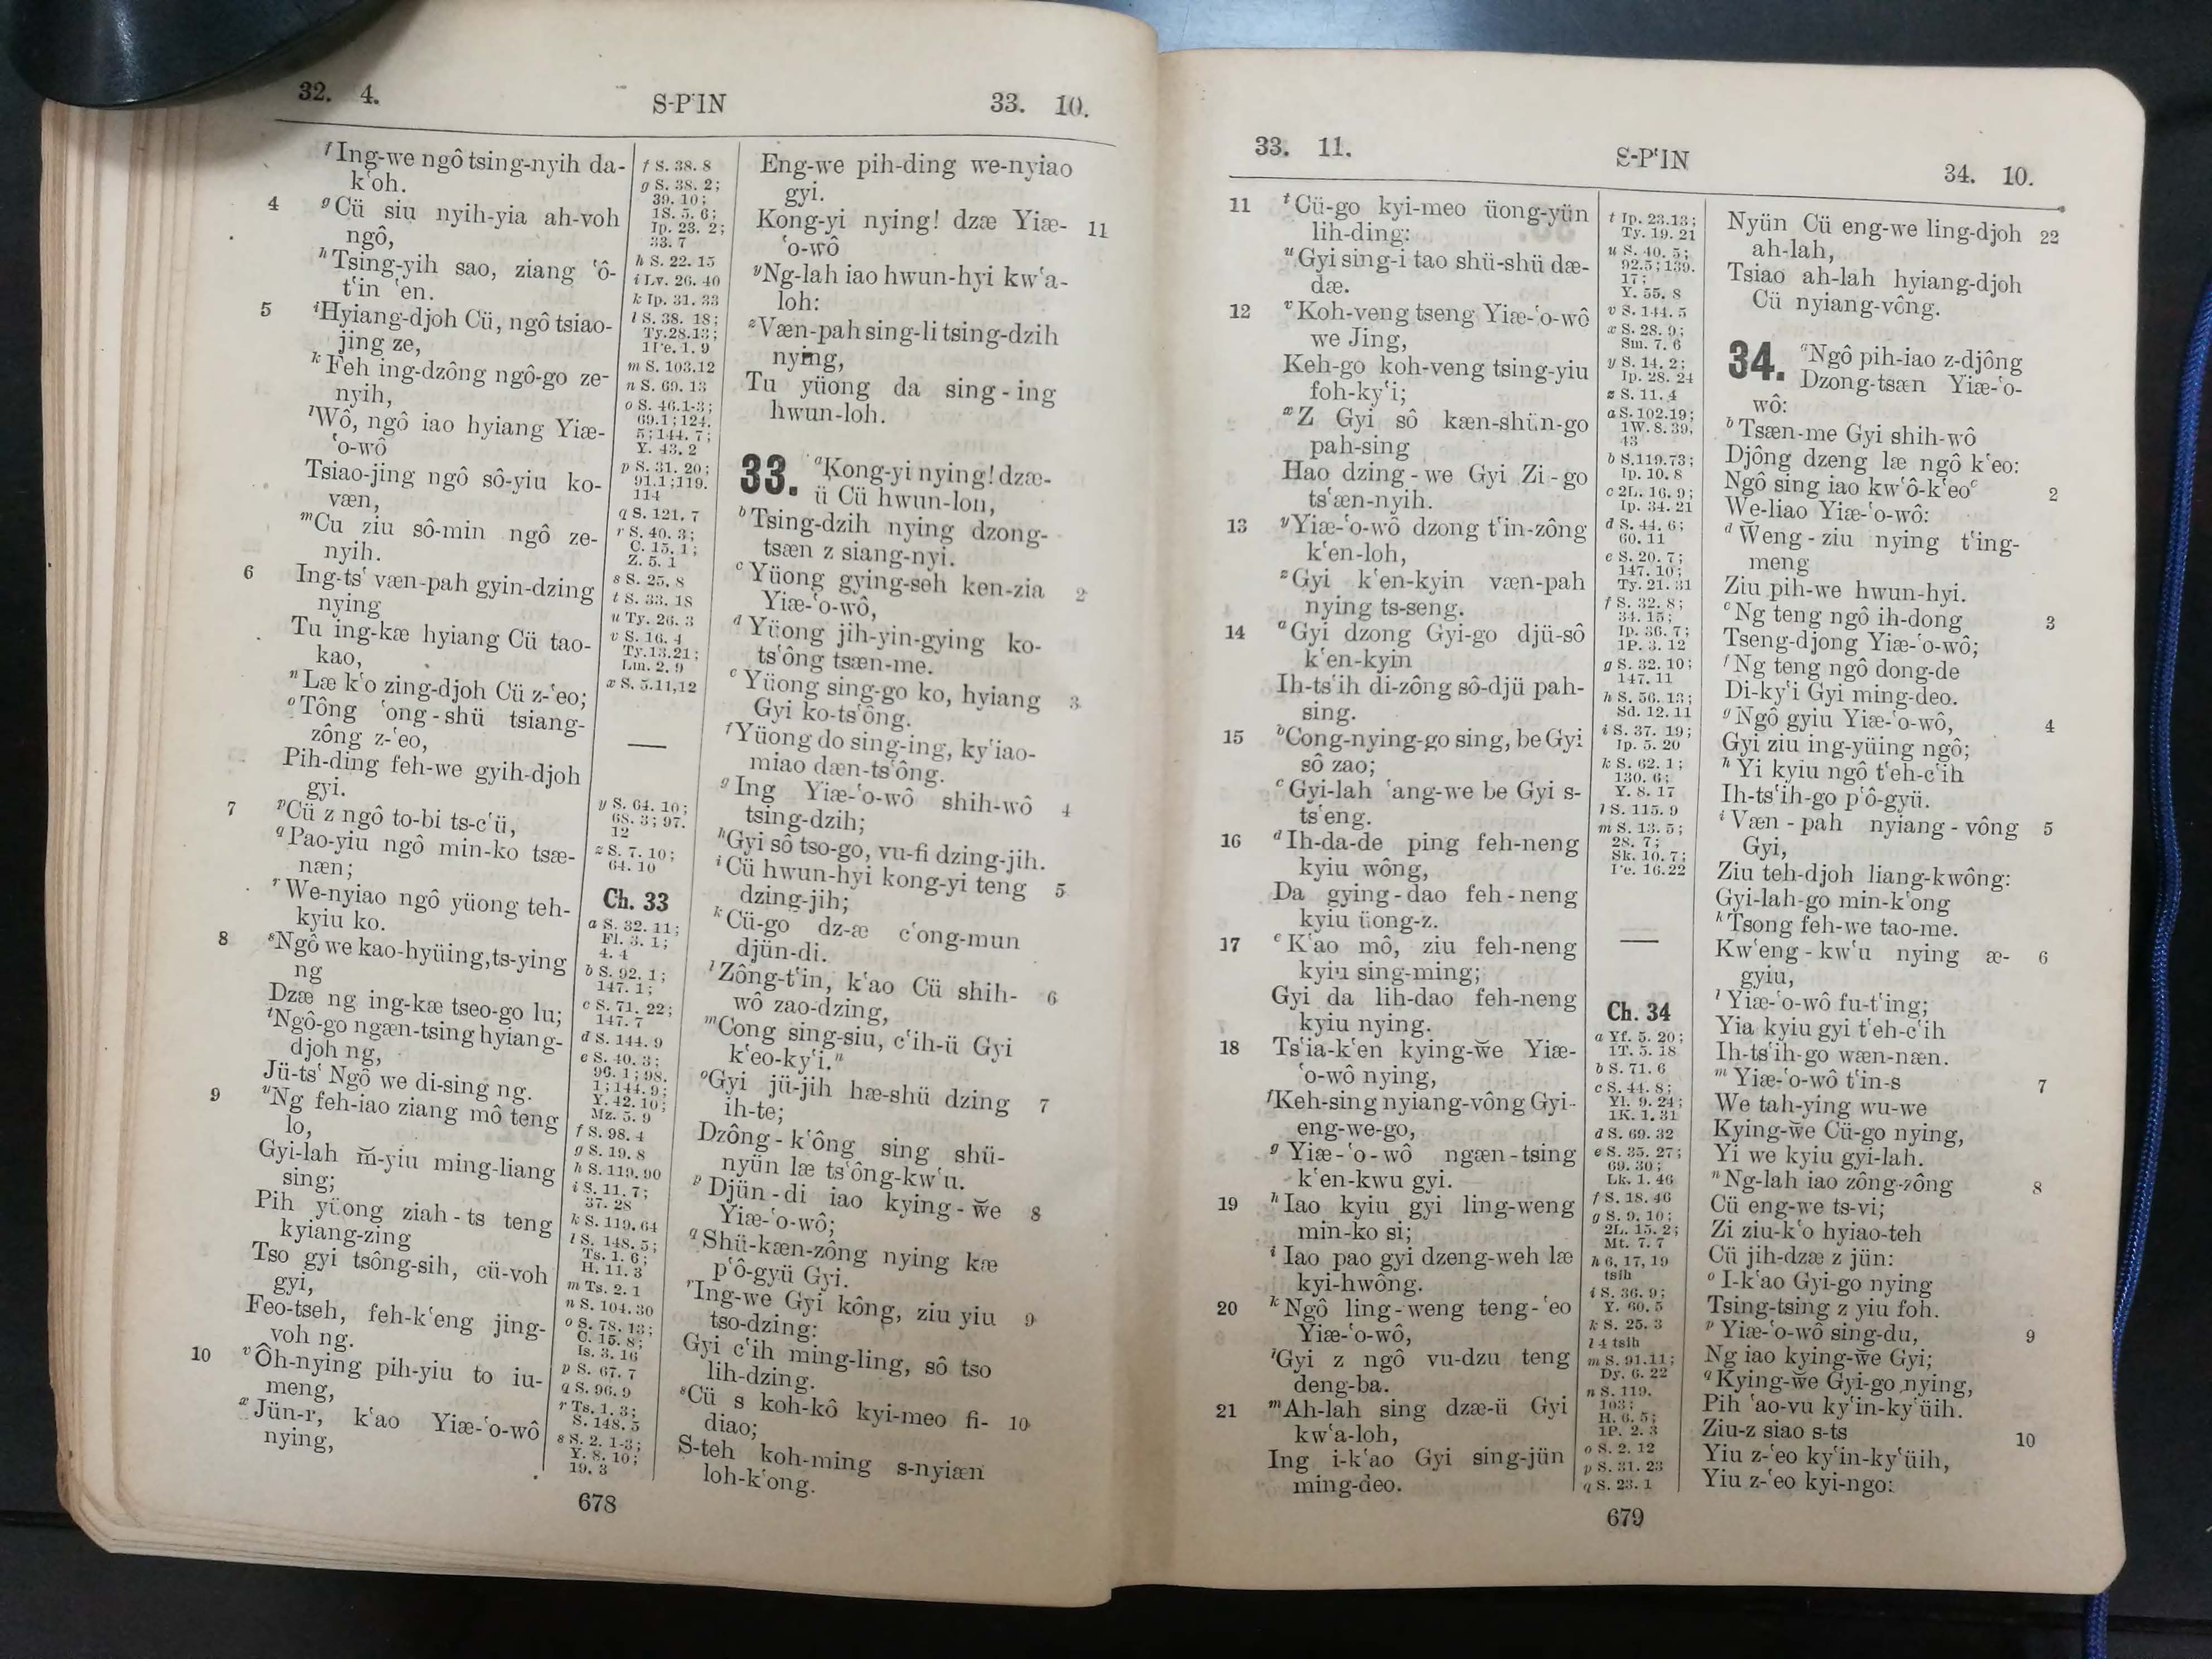 32. 4. S-P‘IN 33. 10.
f Ing-we ngô tsing-nyih da-
k‘oh.
4 g Cü siu nyih-yia ah-voh
ngô,
h Tsing-yih sao, ziang ‘ô-
t‘in ‘en.
5 i Hyiang-djoh Cü, ngô tsiao-
jing ze,
k Feh ing-dzông ngô-go ze-
nyih,
l Wô, ngô iao hyiang Yiæ-
‘o-wô
Tsiao-jing ngô sô-yiu ko-
væn,
m Cu ziu sô-min ngô ze-
nyih.
6 Ing-ts‘ væn-pah gyin-dzing
nying
Tu ing-kæ hyiang Cü tao-
kao,
n Læ k‘o zing-djoh Cü z-‘eo;
o Tông ‘ong-shü tsiang-
zông z-‘eo,
Pih-ding feh-we gyih-djoh
gyi.
7 p Cü z ngô to-bi ts-c‘ü,
q Pao-yiu ngô min-ko tsæ-
næn;
r We-nyiao ngô yüong teh-
kyiu ko.
8 s Ngô we kao-hyüing, ts-ying
ng
Dzæ ng ing-kæ tseo-go lu;
t Ngô-go ngæn-tsing hyiang-
djoh ng,
Jü-ts‘ Ngô we di-sing ng.
9 u Ng feh-iao ziang mô teng
lo,
Gyi-lah m̆-yiu ming-liang
sing;
Pih yüong ziah-ts teng
kyiang-zing
Tso gyi tsông-sih, cü-voh
gyi,
Feo-tseh, feh-k‘eng jing-
voh ng.
10 v Ôh-nying pih-yiu to iu-
meng,
x Jün-r, k‘ao Yiæ-‘o-wô
nying,
f S. 38. 8
g S. 38. 2;
39. 10;
1S. 5. 6;
Ip. 23. 2;
33. 7
h S. 22. 15
i Lv. 26. 40
k Ip. 31. 33
l S. 38. 18;
Ty. 28. 13;
1Ie. 1. 9
m S. 103. 12
n S. 69. 13
o S. 46. 1-3;
69. 1; 124.
5; 144. 7;
Y. 43. 2
p S. 31. 20;
91. 1; 119.
114
q S. 121. 7
r S. 40. 3;
C. 15. 1;
Z. 5. 1
s S. 25. 8
t S. 33. 18
u Ty. 26. 3
v S. 16. 4
Ty. 13. 21;
Lm. 2. 9
x S. 5. 11, 12
y S. 64. 10;
68. 3; 97.
12
z S. 7. 10;
64. 10
Ch. 33
a S. 32. 11;
Fl. 3. 1;
4. 4
b S. 92. 1;
147. 1;
c S. 71. 22;
147. 7
d S. 144. 9
e S. 40. 3;
96. 1; 98.
1; 144. 9;
Y. 42. 10;
Mz. 5. 9
f S. 98. 4
g S. 19. 8
h S. 119. 90
i S. 11. 7;
37. 28
k S. 119. 64
l S. 148. 5;
Ts. 1. 6;
H. 11. 3
m Ts. 2. 1
n S. 104. 30
o S. 78. 13;
C. 15. 8;
Is. 3. 16
p S. 67. 7
q S. 96. 9
r Ts. 1. 3;
S. 148. 5
s S. 2. 1-3;
Y. 8. 10;
19. 3
Eng-we pih-ding we-nyiao
gyi.
Kong-yi nying! dzæ Yiæ- 11
‘o-wô
y Ng-lah iao hwun-hyi kw‘a-
loh:
z Væn-pah sing-li tsing-dzih
nying,
Tu yüong da sing-ing
hwun-loh.
33. a Kong-yi nying! dzæ-
ü Cü hwun-loh,
b Tsing-dzih nying dzong-
tsæn z siang-nyi.
c Yüong gying-seh ken-zia 2
Yiæ-‘o-wô,
d Yüong jih-yin-gying ko-
ts‘ông tsæn-me.
e Yüong sing-go ko, hyiang 3
Gyi ko-ts‘ông.
f Yüong do sing-ing, ky‘iao-
miao dæn-ts‘ông.
g Ing Yiæ-‘o-wô shih-wô 4
tsing-dzih;
h Gyi sô tso-go, vu-fi dzing-jih.
i Cü hwun-hyi kong-yi teng 5
dzing-jih;
k Cü-go dz-æ c‘ong-mun
djün-di.
l Zông-t‘in, k‘ao Cü shih- 6
wô zao-dzing,
m Cong sing-siu, c‘ih-ü Gyi
k‘eo-ky‘i. n
o Gyi jü-jih hæ-shü dzing 7
ih-te;
Dzông-k‘ông sing shü-
nyün læ ts‘ông-kw‘u.
p Djün-di iao kying-w̆e 8
Yiæ-‘o-wô;
q Shü-kæn-zông nying kæ
p‘ô-gyü Gyi.
r Ing-we Gyi kông, ziu yiu 9
tso-dzing:
Gyi c‘ih ming-ling, sô tso
lih-dzing.
s Cü s koh-kô kyi-meo fi- 10
diao;
S-teh koh-ming s-nyiæn
loh-k‘ong.
678
33. 11. S-P‘IN 34. 10.
11 t Cü-go kyi-meo üong-yün
lih-ding:
u Gyi sing-i tao shü-shü dæ-
dæ.
12 v Koh-veng tseng Yiæ-‘o-wô
we Jing,
Keh-go koh-veng tsing-yiu
foh-ky‘i;
x Z Gyi sô kæn-shün-go
pah-sing
Hao dzing-we Gyi Zi-go
ts‘æn-nyih.
13 y Yiæ-‘o-wô dzong t‘in-zông
k‘en-loh,
z Gyi k‘en-kyin væn-pah
nying ts-seng.
14 a Gyi dzong Gyi-go djü-sô
k‘en-kyin
Ih-ts‘ih di-zông sô-djü pah-
sing.
15 b Cong-nying-go sing, be Gyi
sô zao;
c Gyi-lah ‘ang-we be Gyi s-
ts‘eng.
16 d Ih-da-de ping feh-neng
kyiu wông,
Da gying-dao feh-neng
kyiu üong-z.
17 e K‘ao mô, ziu feh-neng
kyiu sing-ming;
Gyi da lih-dao feh-neng
kyiu nying.
18 Ts‘ia-k‘en kying-w̆e Yiæ-
‘o-wô nying,
f Keh-sing nyiang-vông Gyi-
eng-we-go,
g Yiæ-‘o-wô ngæn-tsing
k‘en-kwu gyi.
19 h Iao kyiu gyi ling-weng
min-ko si;
i Iao pao gyi dzeng-weh læ
kyi-hwông.
20 k Ngô ling-weng teng-‘eo
Yiæ-‘o-wô,
l Gyi z ngô vu-dzu teng
deng-ba.
21 m Ah-lah sing dzæ-ü Gyi
kw‘a-loh,
Ing i-k‘ao Gyi sing-jün
ming-deo.
t Ip. 23. 13;
Ty. 19. 21
u S. 40. 5;
92. 5; 139.
17;
Y. 55. 8
v S. 144. 5
x S. 28. 9;
Sm. 7. 6
y S. 14. 2;
Ip. 28. 24
z S. 11. 4
a S. 102. 19;
1W. 8. 39,
43
b S. 119. 73;
Ip. 10. 8
c 2L. 16. 9;
Ip. 34. 21
d S. 44. 6;
60. 11
e S. 20. 7;
147. 10;
Ty. 21. 31
f S. 32. 8;
34. 15;
Ip. 36. 7;
1P. 3. 12
g S. 32. 10;
147. 11
h S. 56. 13;
Sd. 12. 11
i S. 37. 19;
Ip. 5. 20
k S. 62. 1;
130. 6;
Y. 8. 17
l S. 115. 9
m S. 13. 5;
28. 7;
Sk. 10. 7;
Ie. 16. 22
Ch. 34
a Yf. 5. 20;
1T. 5. 18
b S. 71. 6
c S. 44. 8;
Yl. 9. 24;
1K. 1. 31
d S. 69. 32
e S. 35. 27;
69. 30;
Lk. 1. 46
f S. 18. 46
g S. 9. 10;
2L. 15. 2;
Mt. 7. 7
h 6, 17, 19
tsih
i S. 36. 9;
Y. 60. 5
k S. 25. 3
l 4 tsih
m S. 91. 11;
Dy. 6. 22
n S. 119.
103;
H. 6. 5;
1P. 2. 3
o S. 2. 12
p S. 31. 23
q S. 23. 1
Nyün Cü eng-we ling-djoh 22
ah-lah,
Tsiao ah-lah hyiang-djoh
Cü nyiang-vông.
34. a Ngô pih-iao z-djông
Dzong-tsæn Yiæ-‘o-
wô:
b Tsæn-me Gyi shih-wô
Djông dzeng læ ngô k‘eo:
Ngô sing iao kw‘ô-k‘eo c 2
We-liao Yiæ-‘o-wô:
d Weng-ziu nying t‘ing-
meng
Ziu pih-we hwun-hyi.
e Ng teng ngô ih-dong 3
Tseng-djong Yiæ-‘o-wô;
f Ng teng ngô dong-de
Di-ky‘i Gyi ming-deo.
g Ngô gyiu Yiæ-‘o-wô, 4
Gyi ziu ing-yüing ngô;
h Yi kyiu ngô t‘eh-c‘ih
Ih-ts‘ih-go p‘ô-gyü.
i Væn-pah nyiang-vông 5
Gyi,
Ziu teh-djoh liang-kwông:
Gyi-lah-go min-k‘ong
k Tsong feh-we tao-me.
Kw‘eng-kw‘u nying æ- 6
gyiu,
l Yiæ-‘o-wô fu-t‘ing;
Yia kyiu gyi t‘eh-c‘ih
Ih-ts‘ih-go wæn-næn.
m Yiæ-‘o-wô t‘in-s 7
We tah-ying wu-we
Kying-w̆e Cü-go nying,
Yi we kyiu gyi-lah.
n Ng-lah iao zông-zông 8
Cü eng-we ts-vi;
Zi ziu-k‘o hyiao-teh
Cü jih-dzæ z jün:
o I-k‘ao Gyi-go nying
Tsing-tsing z yiu foh.
p Yiæ-‘o-wô sing-du, 9
Ng iao kying-w̆e Gyi;
q Kying-w̆e Gyi-go nying,
Pih ‘ao-vu ky‘in-ky‘üih.
Ziu-z siao s-ts 10
Yiu z-‘eo ky‘in-ky‘üih,
Yiu z-‘eo kyi-ngo:
679